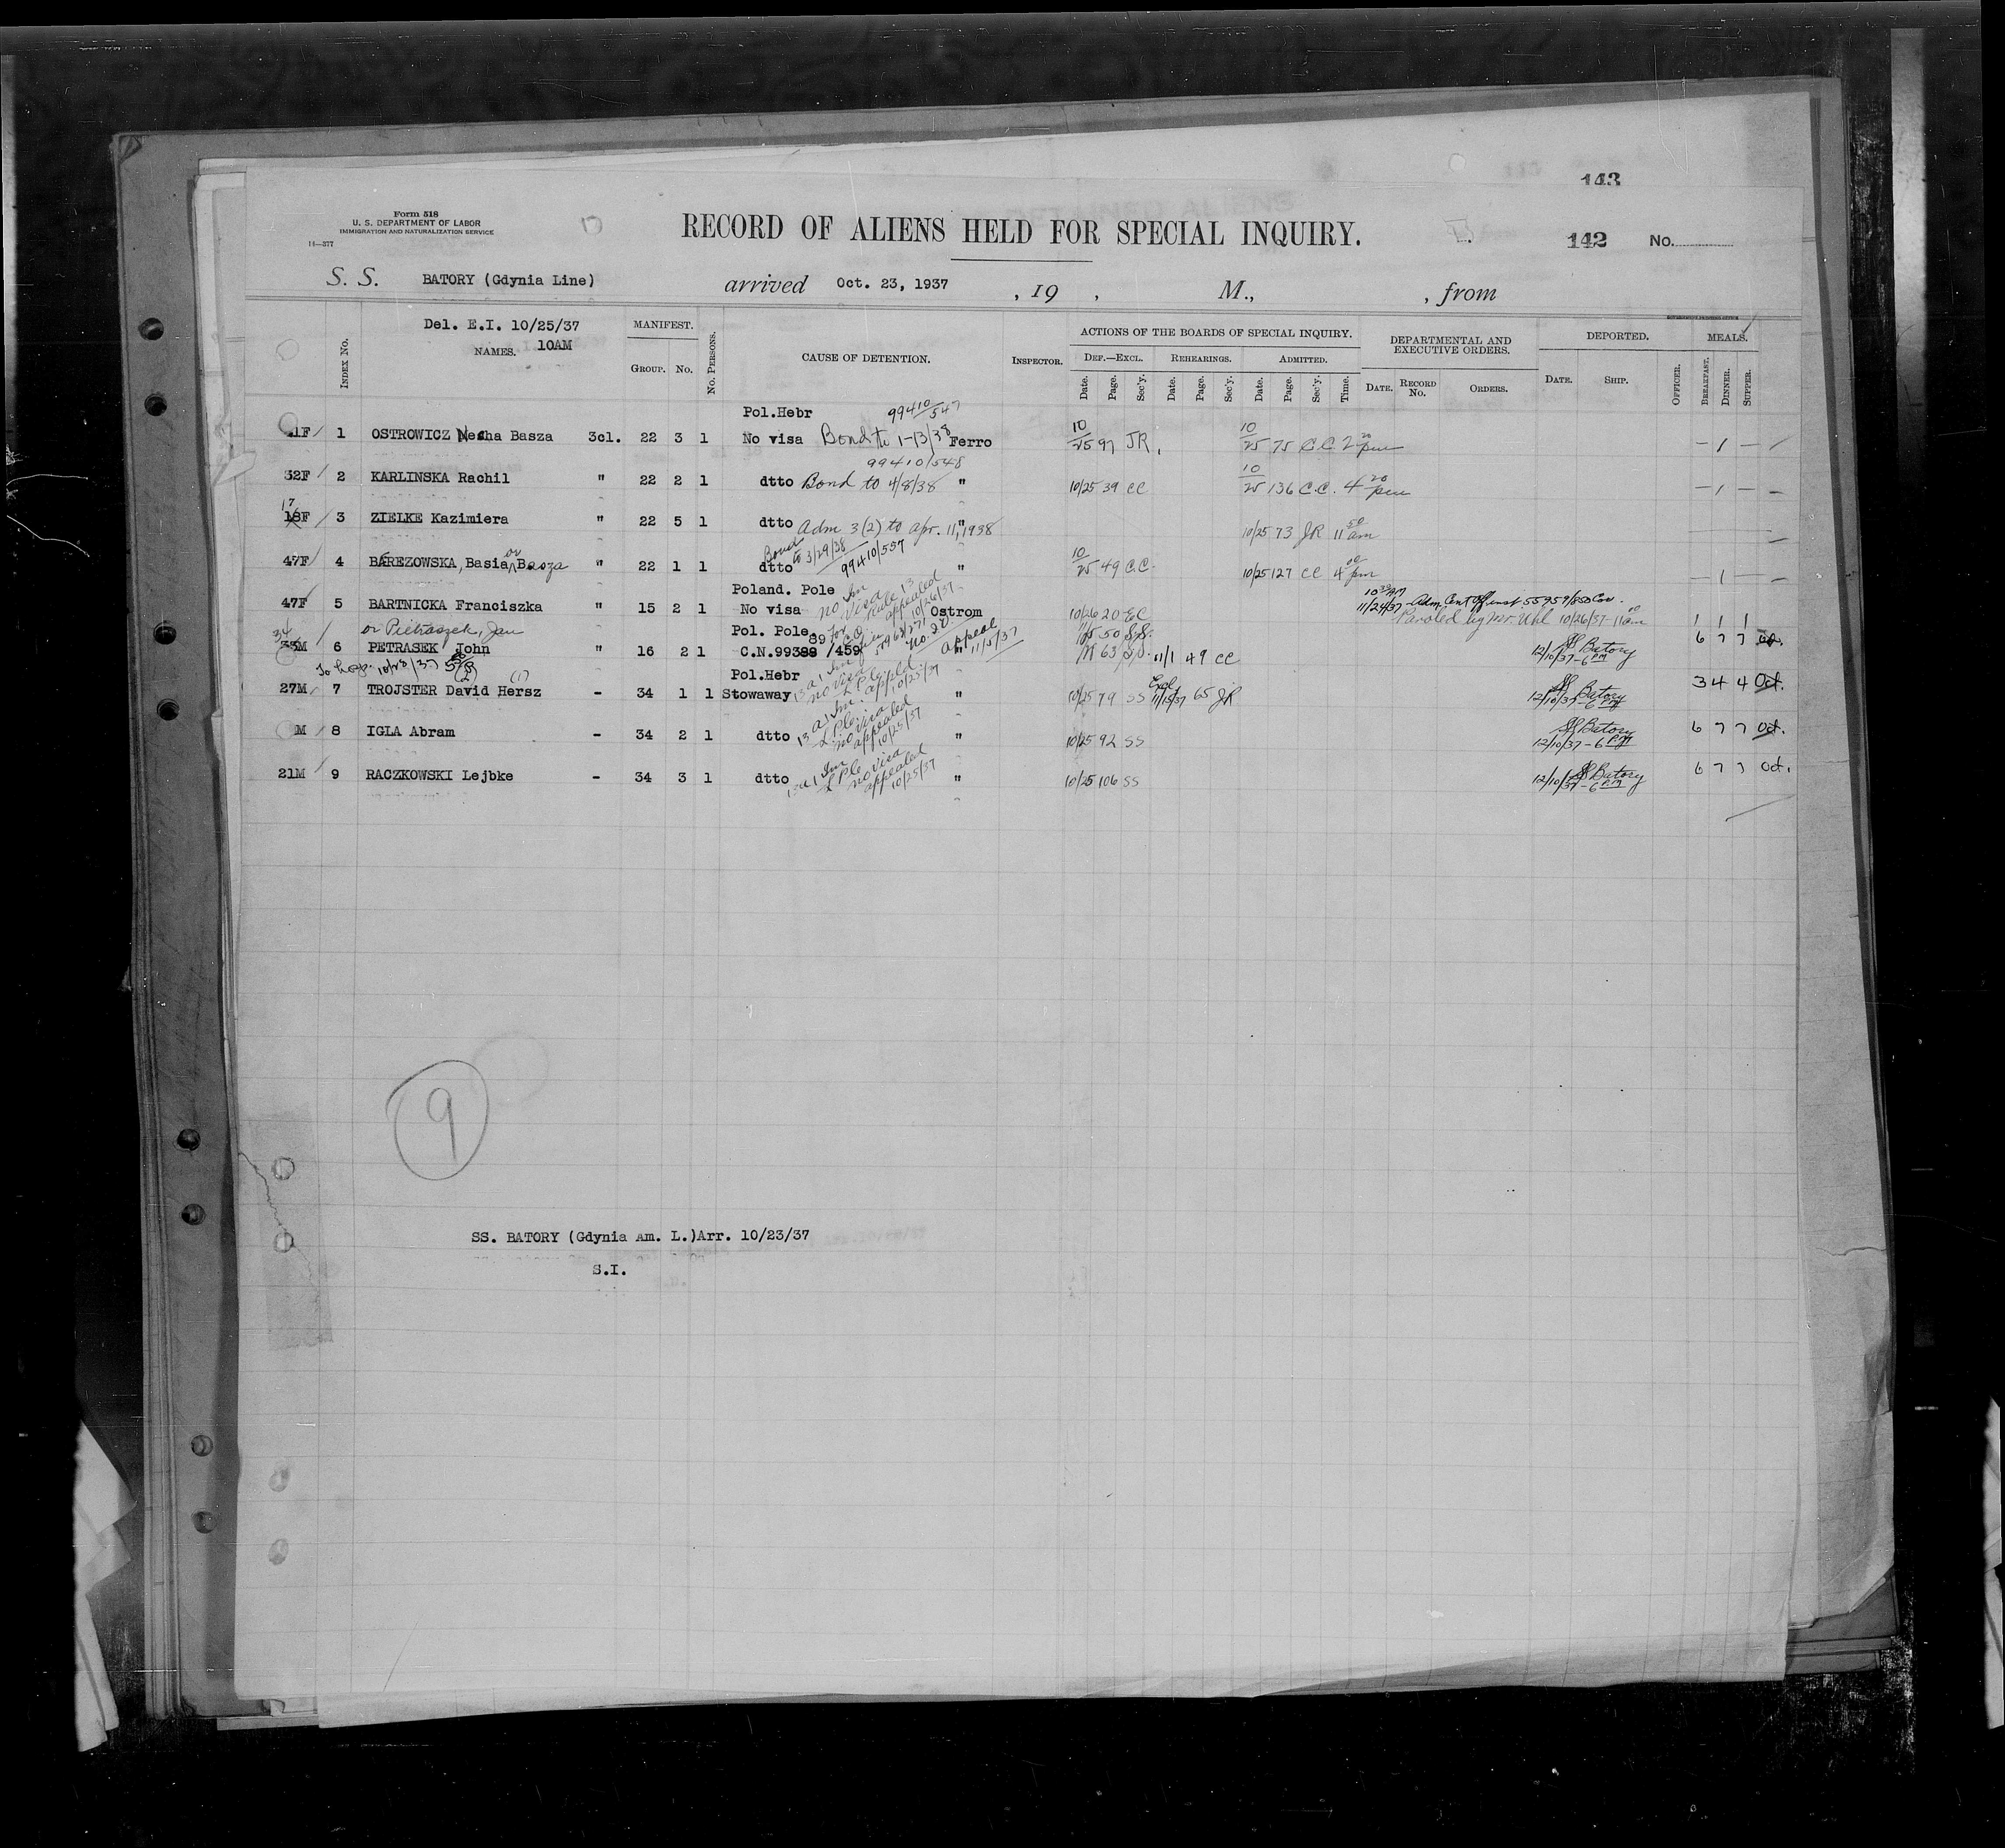 143
Form 518
U. S. DEPARTMENT OF LABOR
IMMIGRATION AND NATURALIZATION SERVICE
14—377
RECORD OF ALIENS HELD FOR SPECIAL INQUIRY.
142 No.
S. S. BATORY (Gdynia Line) arrived Oct. 23, 1937 , 19 , M., , from
Del. E.I. 10/25/37
10AM
INDEX No. NAMES. MANIFEST. GROUP. No. No. PERSONS. CAUSE OF DETENTION. INSPECTOR. ACTIONS OF THE BOARDS OF SPECIAL INQUIRY. DEPARTMENTAL AND EXECUTIVE ORDERS. DEPORTED. MEALS.
DEF.—EXCL. REHEARINGS. ADMITTED.
Date. Page. Sec'y. Date. Page. Sec'y. Date. Page. Sec'y. Time. DATE. RECORD No. ORDERS. DATE. SHIP. OFFICER. BREAKFAST. DINNER. SUPPER.
Pol.Hebr 99410/547
1F 1 OSTROWICZ Necha Basza 3cl. 22 3 1 No visa Bond to 1-13/38 Ferro 10/25 97 JR. 10/25 75 C.C. 2 20 pm — 1 —
99410/548
32F 2 KARLINSKA Rachil " 22 2 1 dtto Bond to 4/8/38 " 10/25 39 CC 10/25 136 C.C. 4 20 pm — 1 — —
17
18F 3 ZIELKE Kazimiera " 22 5 1 dtto Adm 3(2) to Apr. 11, 1938 " 10/25 73 JR 11 50 am —
Bond to 3/29/38
47F 4 BEREZOWSKA, Basia or Basza " 22 1 1 dtto 99410/557 " 10/25 49 C.C. 10/25 127 CC 4 00 pm — 1 — —
Poland. Pole no Im visa Rule 13 appealed 10/26/37
47F 5 BARTNICKA Franciszka " 15 2 1 No visa Ostrom 10/26 20 EC 11/24/37 Adm. Cent Off inst 55959/850
Paroled by Mr. Uhl 10/26/37 11 00 am 1 1 1
34 or Pietraszek, Jan Pol. Pole
35M 6 PETRASEK John " 16 2 1 C.N.99388 89 /459 appeal 11/5/37 50 S.S. 63 11/1 49 CC 12/10/37-6 PM SS Batory 6 7 7 Oct.
To hosp. 10/28/37
Pol.Hebr
27M 7 TROJSTER David Hersz - 34 1 1 Stowaway no visa appealed 10/25/37 " 10/25 79 SS Excl. 11/15/37 65 JR 12/10/37-6 PM SS Batory 3 4 4 Oct.
M 8 IGLA Abram - 34 2 1 dtto no visa appealed 10/25/37 " 10/25 92 SS 12/10/37-6 PM SS Batory 6 7 7 Oct.
21M 9 RACZKOWSKI Lejbke - 34 3 1 dtto no visa appealed 10/25/37 " 10/25 106 SS 12/10/37-6 PM SS Batory 6 7 7 Oct.
9
SS. BATORY (Gdynia Am. L.)Arr. 10/23/37
S.I.